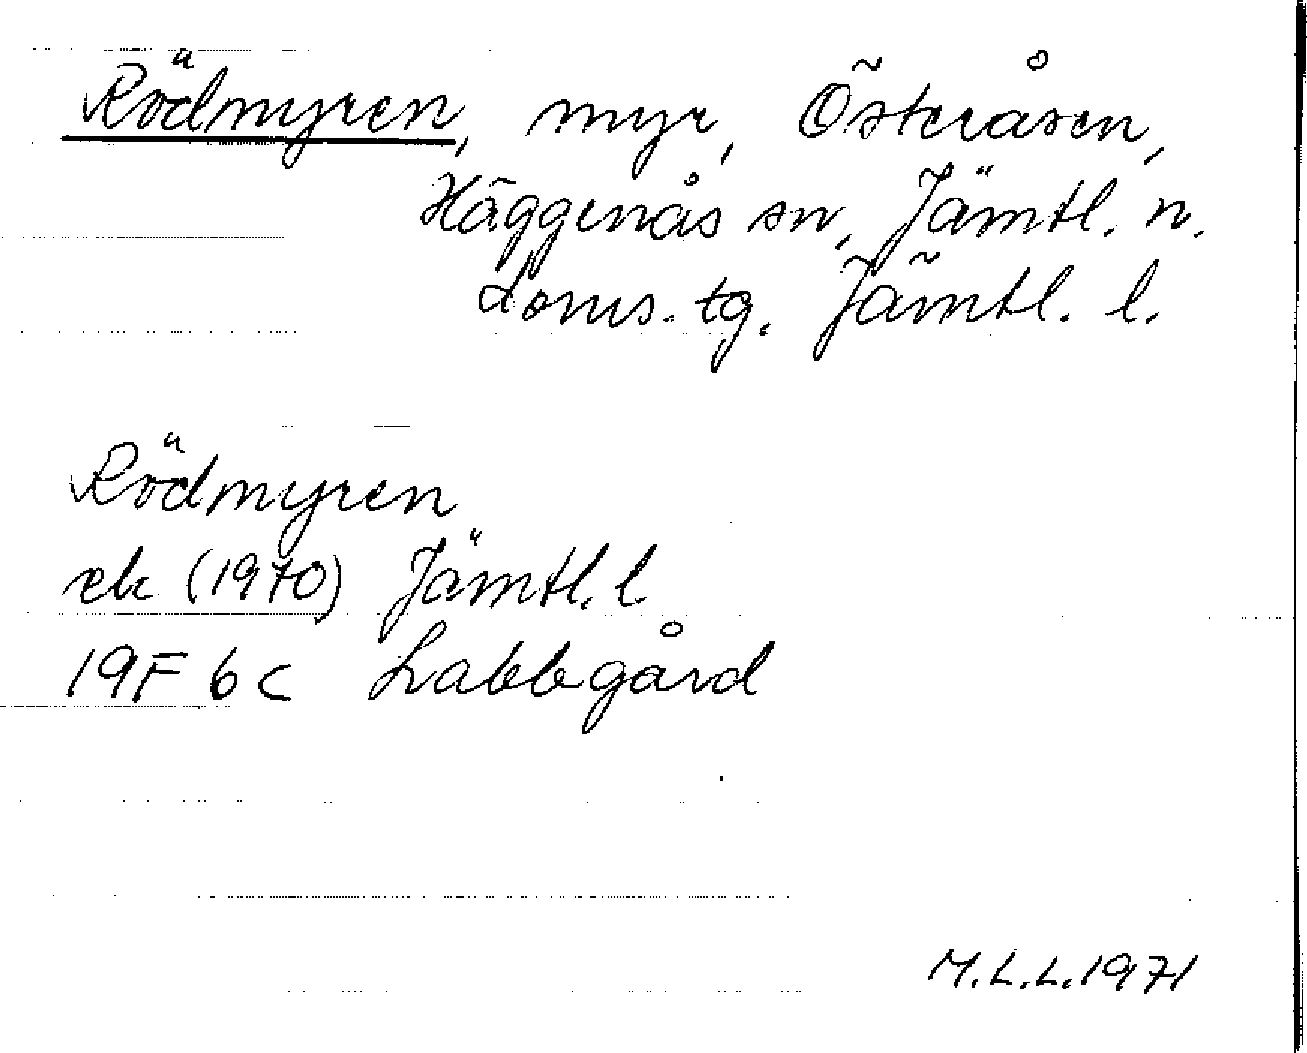 Rödmyren, myr, Österåsen,
Häggenås sn, Jämtl. n.
doms. tg. Jämtl. l.
Rödmyren
ek (1970) Jämtl. l
19F 6c Labbgård
M.L.L. 1971